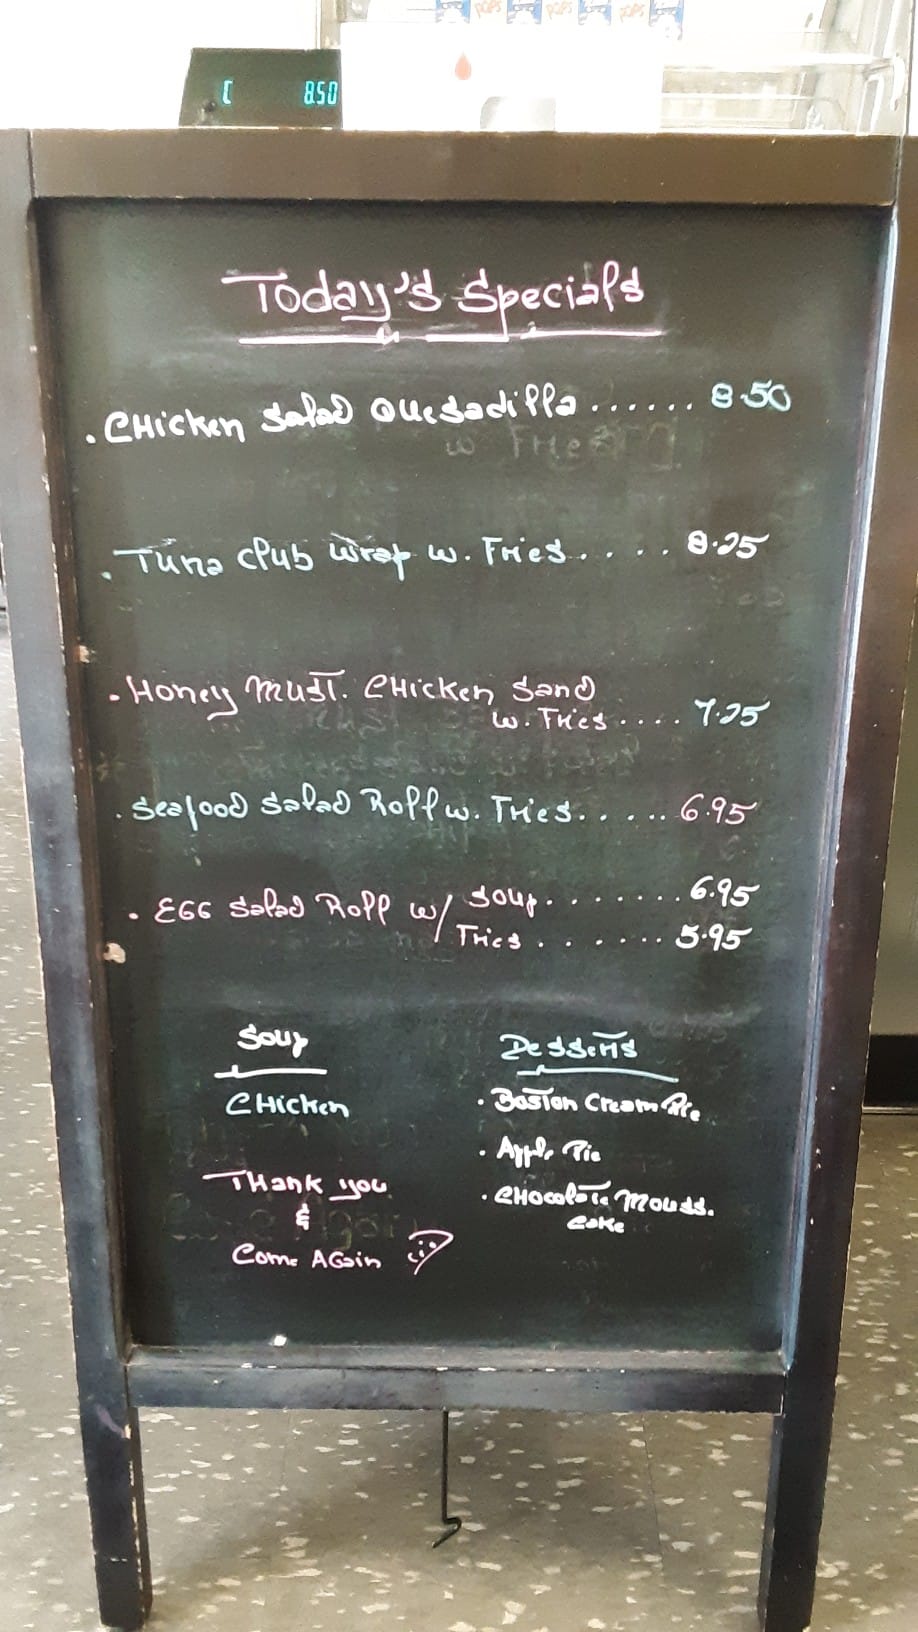 POPS POPS POPS
C 8.50
Today's Specials
. CHicken Salad Quesadilla ...... 8.50
. Tuna Club Wrap w. Fries ..... 8.25
. Honey Must. CHicken Sand
w. Fries .... 7.25
. Seafood Salad Roll w. Fries ...... 6.95
. EGG Salad Roll w/ Soup ........ 6.95
Fries ....... 5.95
Soup
CHicken
Desserts
. Boston Cream Pie
. Apple Pie
. CHocolate Mouss.
Cake
THank you
&
Come AGain